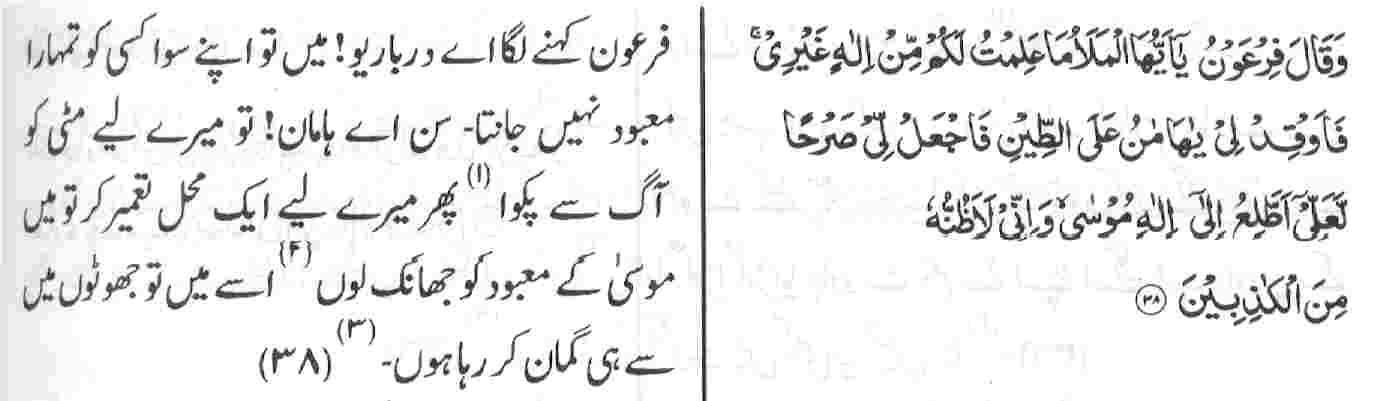 وَقَالَ فِرْعَوْنُ يٰٓاَيُّهَا الْمَلَاُ مَا عَلِمْتُ لَكُمْ مِّنْ اِلٰهٍ غَيْرِيْ ۚ
فَاَوْقِدْ لِيْ يٰهَامٰنُ عَلَى الطِّيْنِ فَاجْعَلْ لِّيْ صَرْحًا
لَّعَلِّيْٓ اَطَّلِعُ اِلٰٓى اِلٰهِ مُوْسٰى ۙ وَاِنِّيْ لَاَظُنُّهٗ
مِنَ الْكٰذِبِيْنَ ۝۳۸
فرعون کہنے لگا اے درباریو! میں تو اپنے سوا کسی کو تمہارا
معبود نہیں جانتا۔ سن اے ہامان! تو میرے لیے مٹی کو
آگ سے پکوا (۱) پھر میرے لیے ایک محل تعمیر کر تو میں
موسیٰ کے معبود کو جھانک لوں (۲) اسے میں تو جھوٹوں میں
سے ہی گمان کر رہا ہوں۔ (۳) (۳۸)